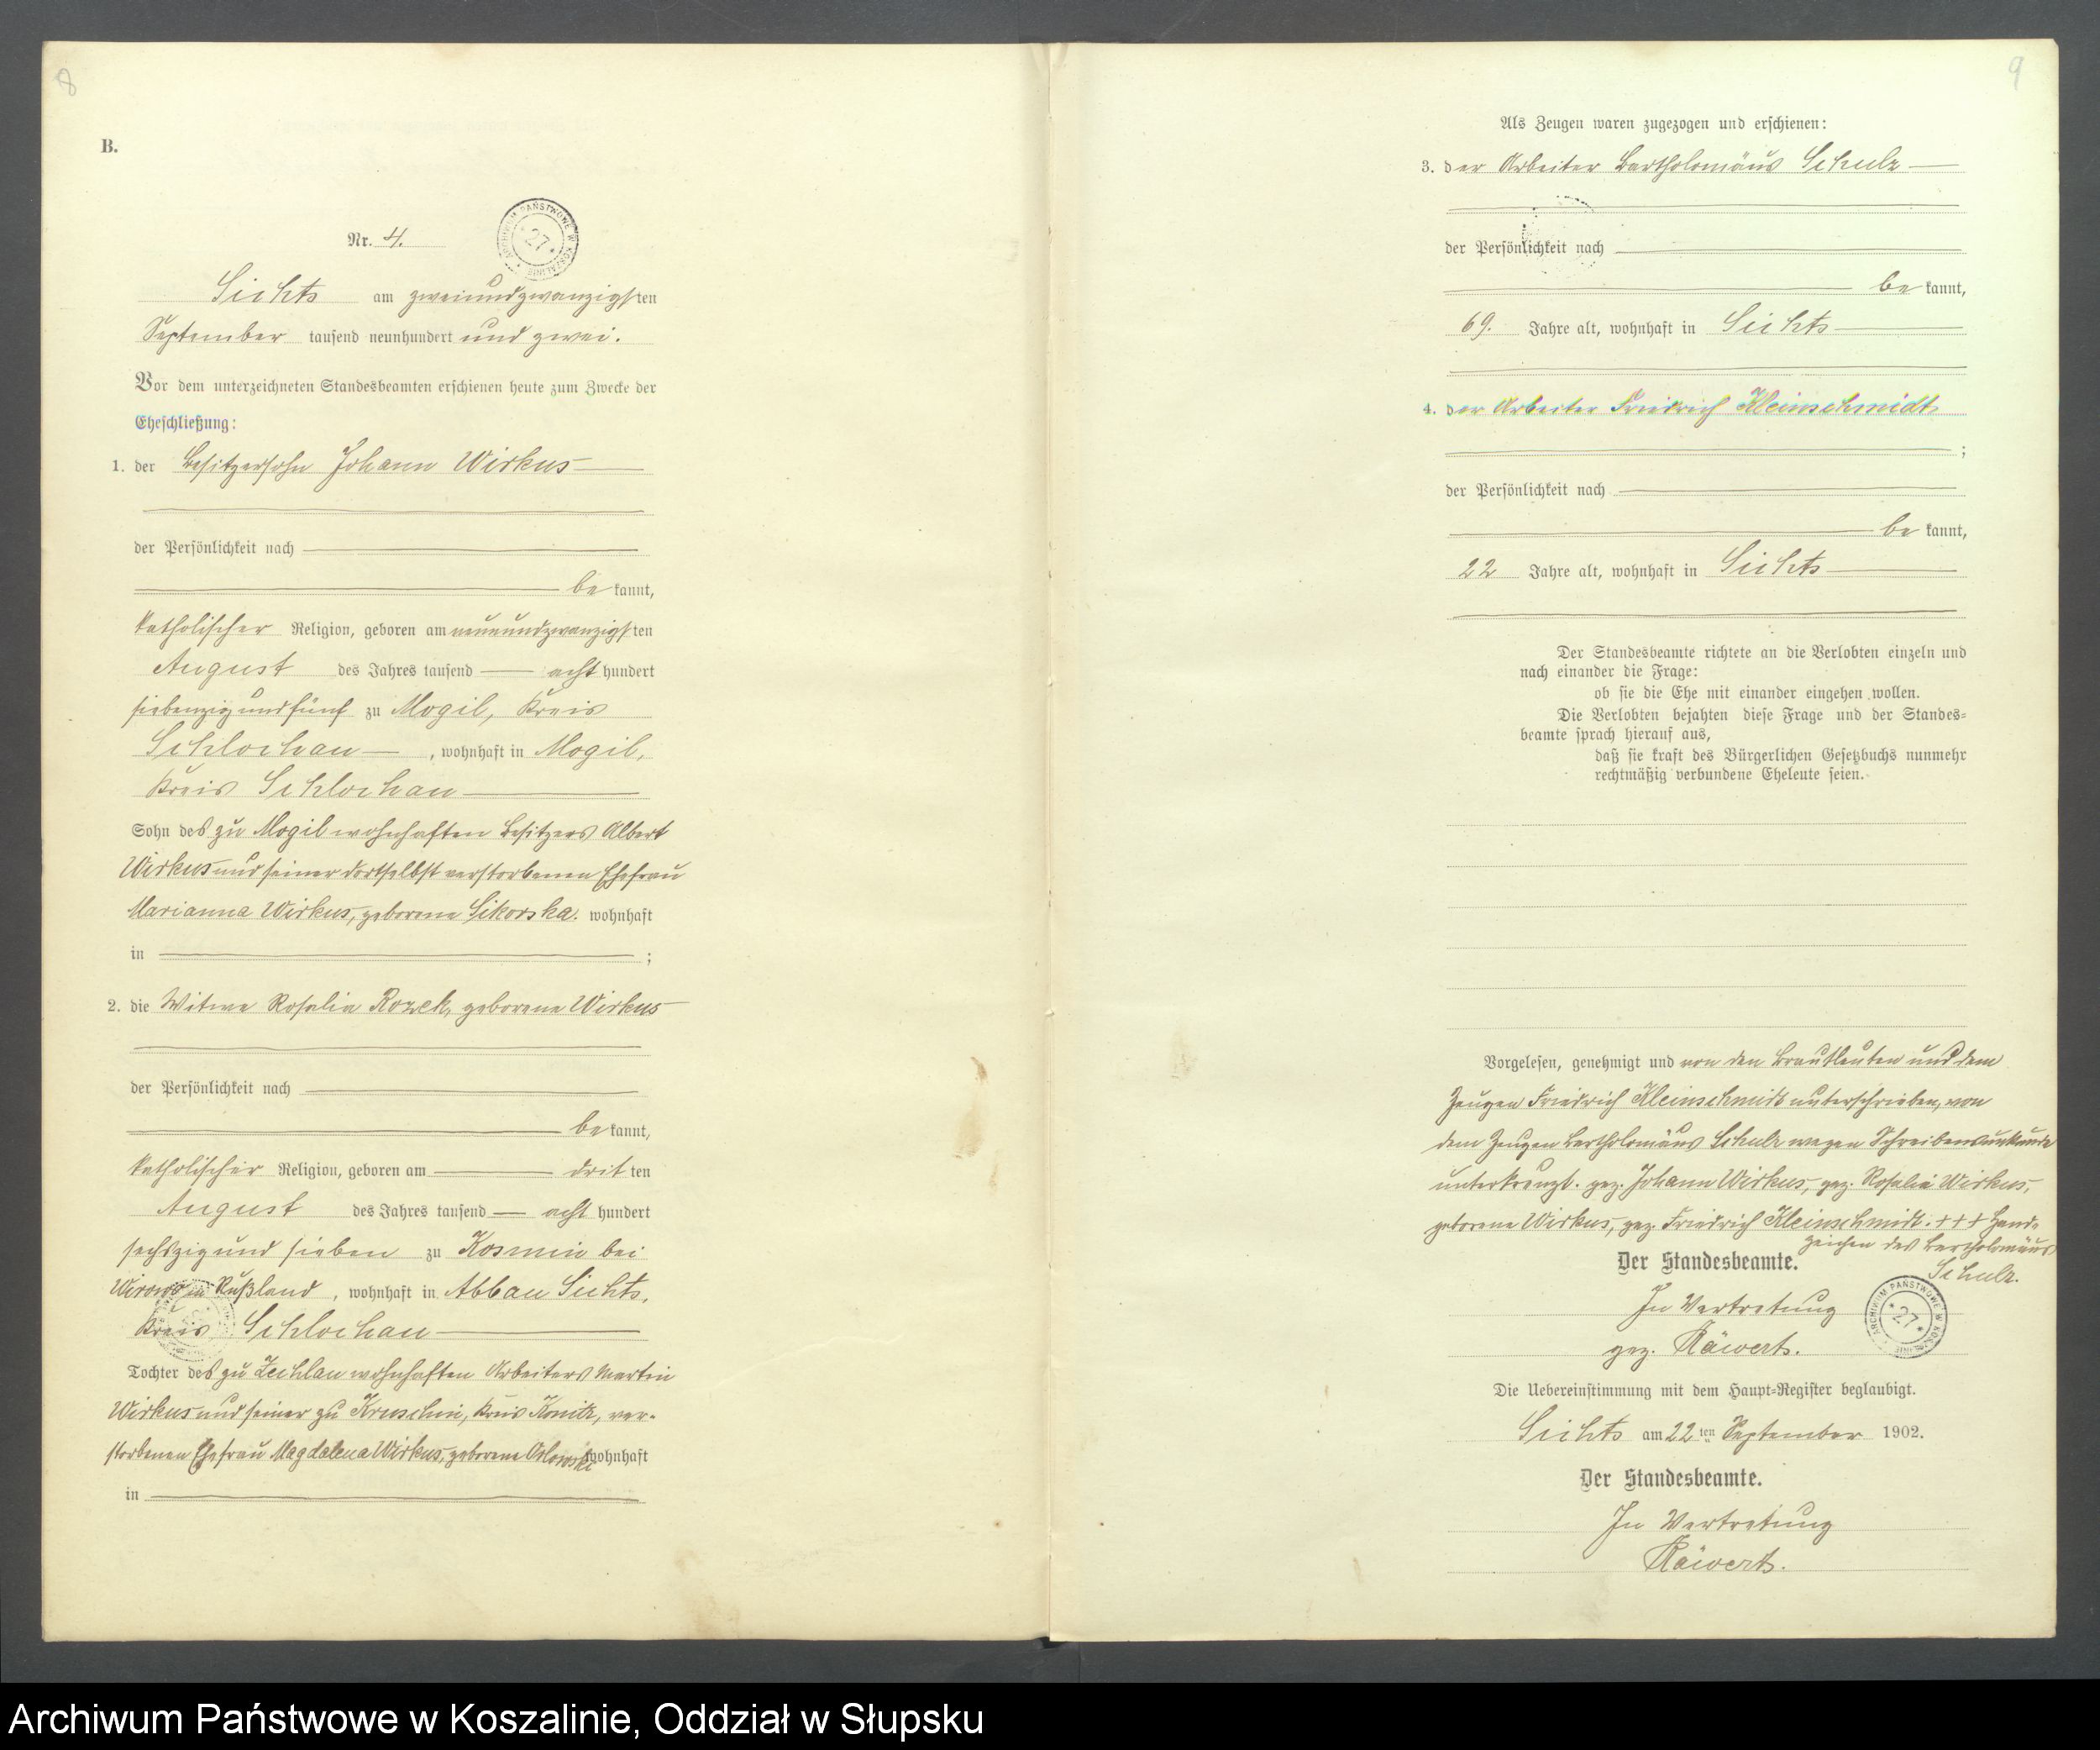 8
B.
Nr. 4.
ARCHIWUM PAŃSTWOWE W KOSZALINIE
* 27 *
Sichts am zweiundzwanzigsten
September tausend neunhundert und zwei.
Vor dem unterzeichneten Standesbeamten erschienen heute zum Zwecke der
Eheschließung:
1. der Besitzersohn Johann Wirkus
der Persönlichkeit nach
be kannt,
katholischer Religion, geboren am neunundzwanzigsten
August des Jahres tausend acht hundert
siebenzig und fünf zu Mogil, Kreis
Schlochau, wohnhaft in Mogil,
Kreis Schlochau
Sohn des zu Mogil wohnhaften Besitzers Albert
Wirkus und seiner dortselbst verstorbenen Ehefrau
Marianna Wirkus, geborene Sikorska. wohnhaft
in ;
2. die Witwe Rosalia Rozek, geborene Wirkus
der Persönlichkeit nach
be kannt,
katholischer Religion, geboren am drit ten
August des Jahres tausend acht hundert
sechszig und sieben zu Kosmin bei
in Rußland, wohnhaft in Abbau Sichts,
Kreis Schlochau
Tochter des zu Zechlau wohnhaften Arbeiters Martin
Wirkus und seiner zu Kruschin, Kreis Konitz, ver-
storbenen Ehefrau Magdalena Wirkus, geborene Orlowski wohnhaft
in
9
Als Zeugen waren zugezogen und erschienen:
3. der Arbeiter Bartholomäus Schulz
der Persönlichkeit nach
be kannt,
69. Jahre alt, wohnhaft in Sichts
4. der Arbeiter Friedrich Kleinschmidt
;
der Persönlichkeit nach
be kannt,
22 Jahre alt, wohnhaft in Sichts
Der Standesbeamte richtete an die Verlobten einzeln und
nach einander die Frage:
ob sie die Ehe mit einander eingehen wollen.
Die Verlobten bejahten diese Frage und der Standes-
beamte sprach hierauf aus,
daß sie kraft des Bürgerlichen Gesetzbuchs nunmehr
rechtmäßig verbundene Eheleute seien.
Vorgelesen, genehmigt und von den Brautleuten und dem
Zeugen Friedrich Kleinschmidt unterschrieben, von
dem Zeugen Bartholomäus Schulz wegen Schreibensunkunde
unterkreuzt. gez. Johann Wirkus, gez. Rosalia Wirkus,
geborene Wirkus, gez. Friedrich Kleinschmidt. +++ Hand-
zeichen des Bartholomäus
Schulz.
Der Standesbeamte.
In Vertretung
gez. Räwert.
ARCHIWUM PAŃSTWOWE W KOSZALINIE
* 27 *
Die Uebereinstimmung mit dem Haupt-Register beglaubigt.
Sichts am 22ten September 1902.
Der Standesbeamte.
In Vertretung
Räwert.
Archiwum Państwowe w Koszalinie, Oddział w Słupsku